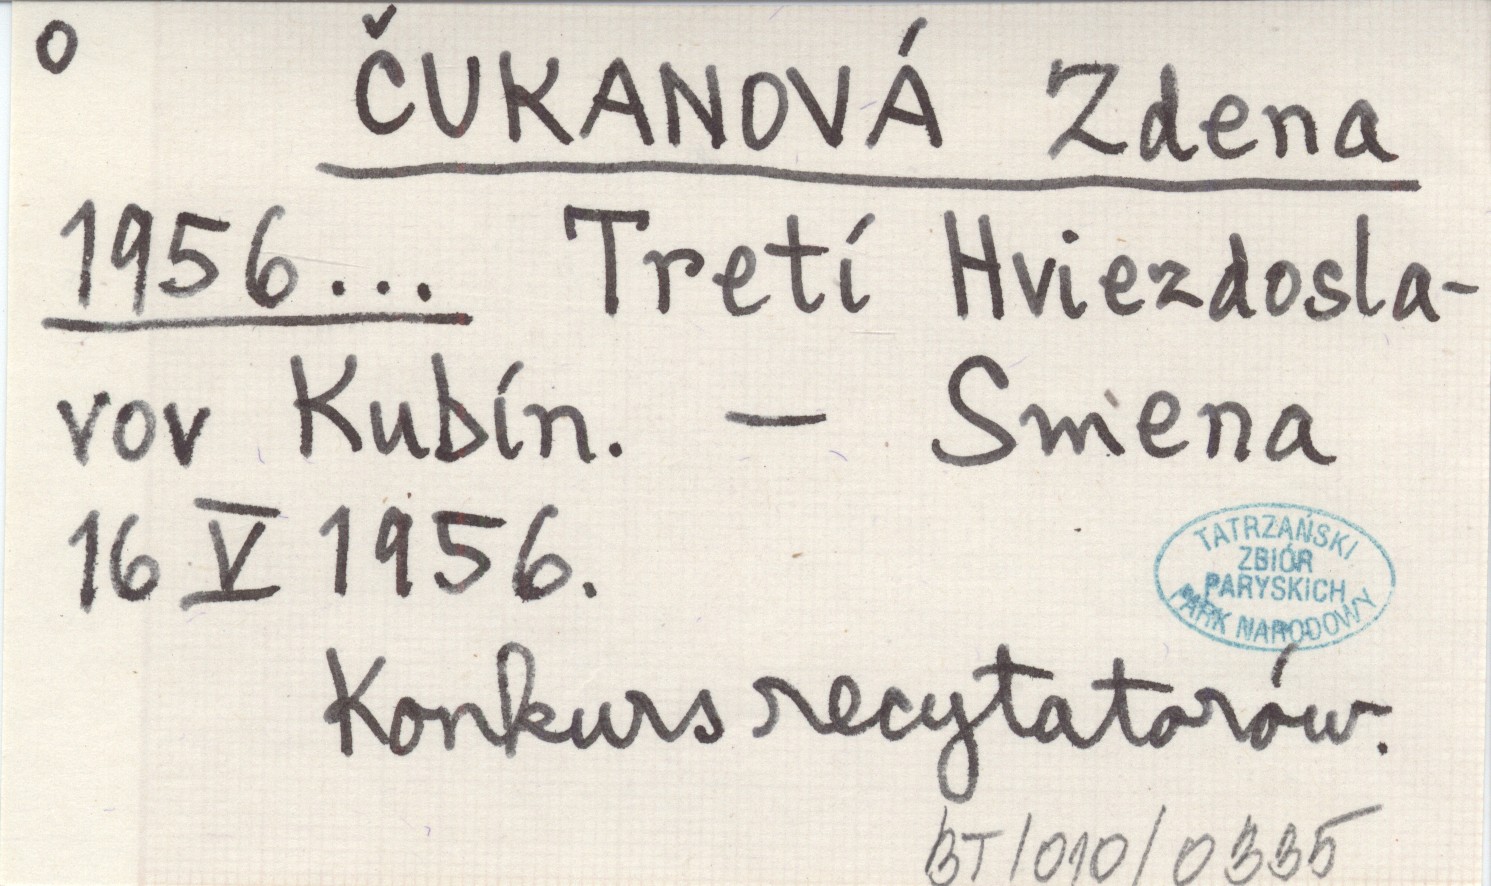 o
ČUKANOVÁ Zdena
1956... Tretí Hviezdosla-
vov Kubín. — Smena
16 V 1956.
TATRZAŃSKI
ZBIÓR
PARYSKICH
PARK NARODOWY
Konkurs recytatorów.
BT/010/0335